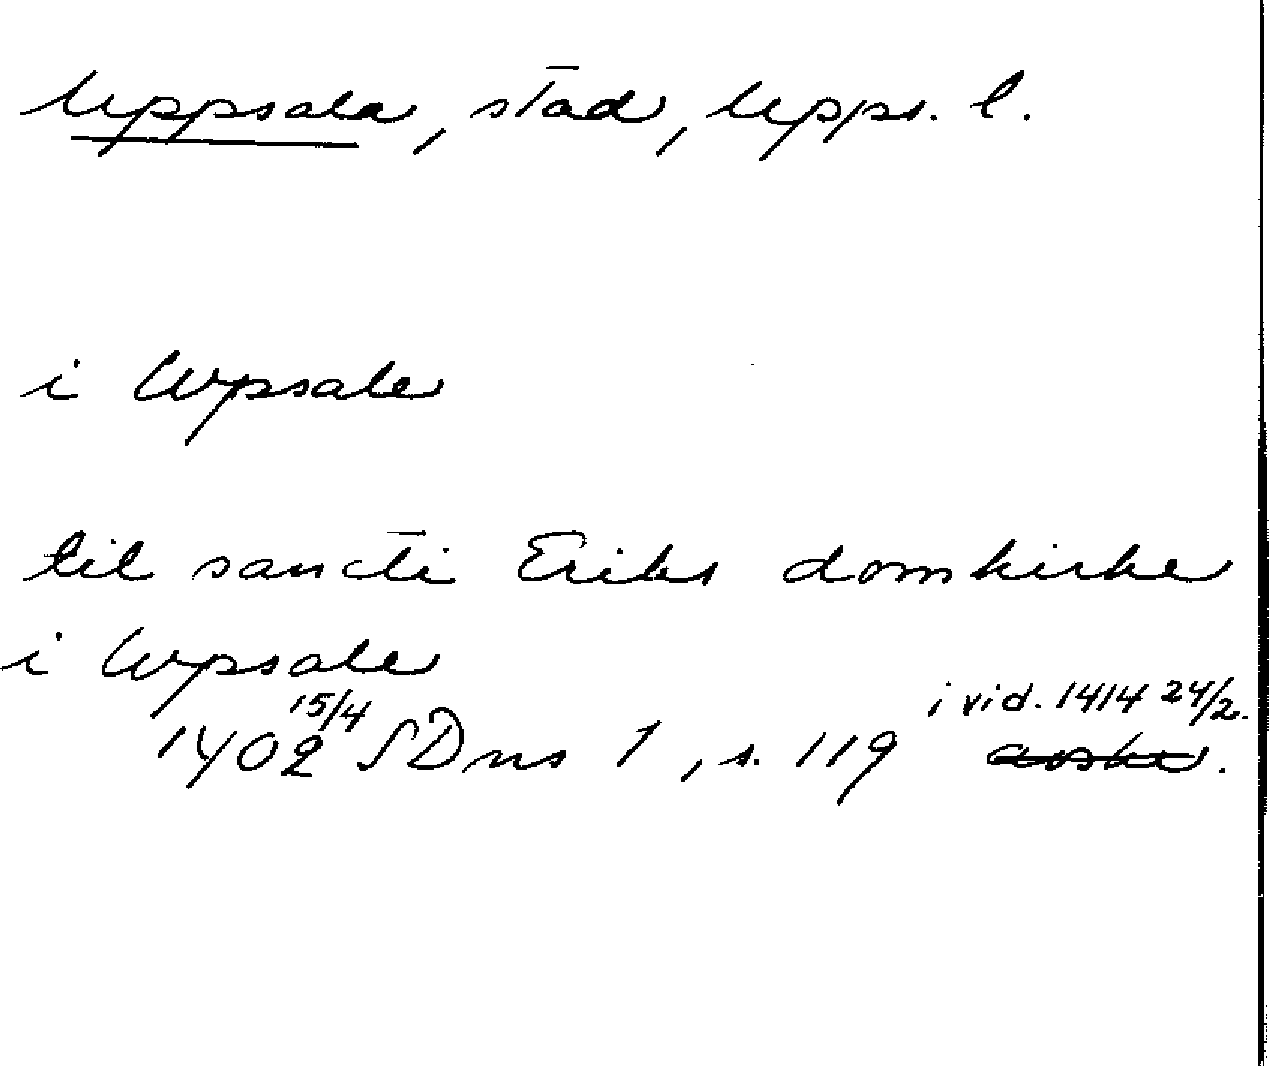 Uppsala, stad, Upps. l.
i Wpsale
til sancti Eriks domkirke
i Wpsale
1402 15/4 SDns 1, s. 119 i vid. 1414 24/2.